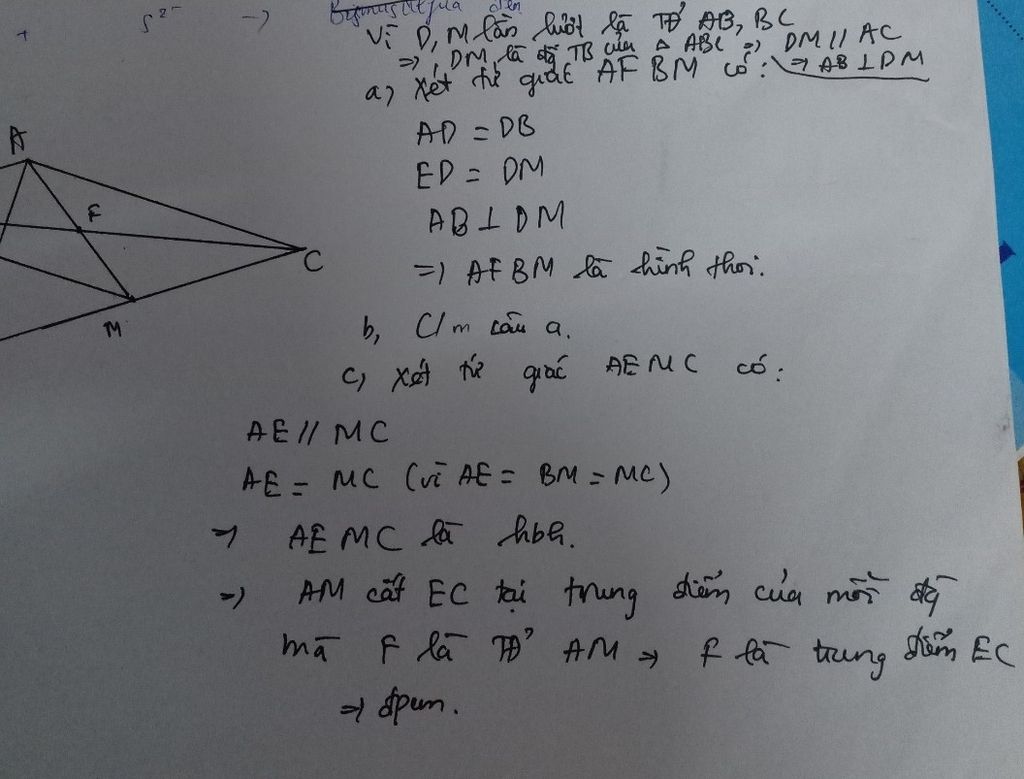 s²⁻ →
Vì D, M lần lượt là TĐ AB, BC
⇒ DM là đg TB của △ ABC ⇒ DM // AC
⇒ AB ⊥ DM
a) Xét tứ giác AEBM có:
AD = DB
ED = DM
AB ⊥ DM
⇒ AEBM là hình thoi.
b, C/m câu a.
c, Xét tứ giác AEMC có:
AE // MC
AE = MC (vì AE = BM = MC)
⇒ AEMC là hbh.
⇒ AM cắt EC tại trung điểm của mỗi đg
mà F là TĐ AM ⇒ F là trung điểm EC
⇒ đpcm.
A
F
C
M